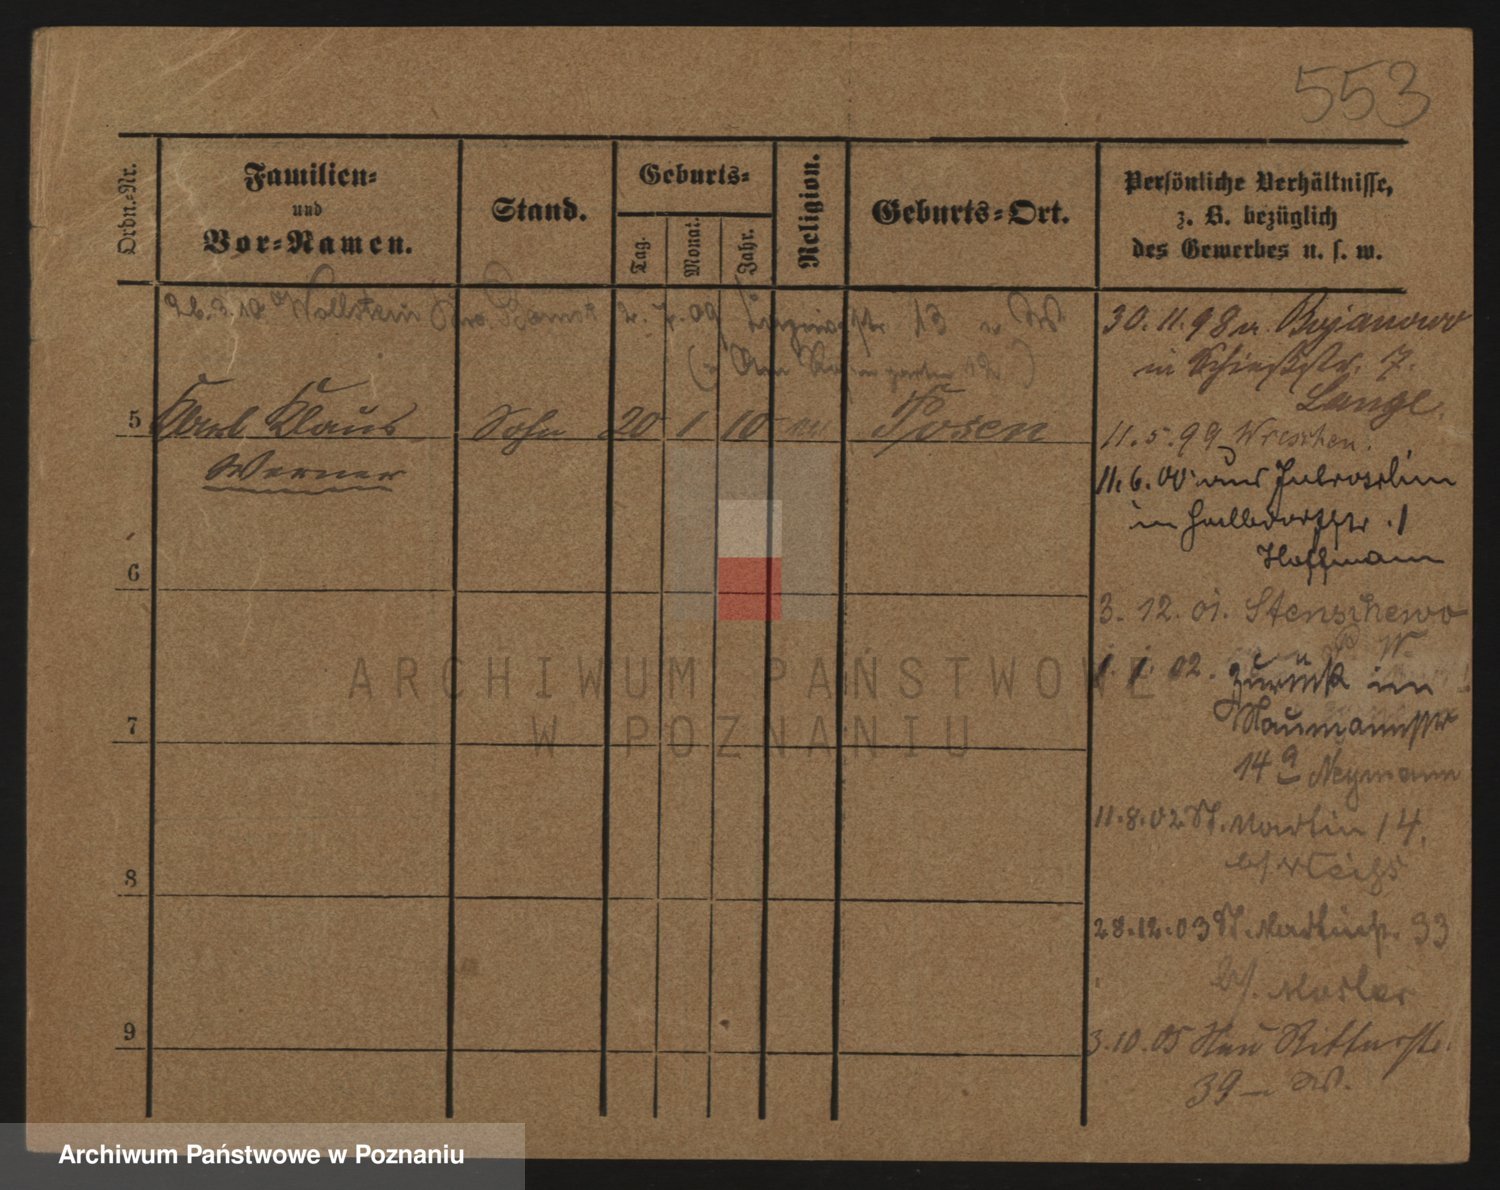 553
Ordn.-Nr.
Familien-
und
Vor-Namen.
Stand.
Geburts-
Tag.
Monat.
Jahr.
Religion.
Geburts-Ort.
Persönliche Verhältnisse,
z. B. bezüglich
des Gewerbes u. s. w.
26.3.10 Wollstein 2.7.09 13
5 Karl Klaus Sohn 20 1 10 Posen
Werner
6
7
8
9
30.11.98 a. Bojanowo
in Schießstr. 7.
Lange.
11.5.99 Wreschen.
11.6.00 aus Jutroschin
in Halbdorfstr. 1
Hoffmann
3.12.01. Stenschewo
1.1.02. zurück in
Naumannstr
14a Neymann
11.8.02 St. Martin 14.
b/ Weihs
28.12.03 St. Martinstr. 33
b/.
3.10.05 Neu Ritterstr.
39 – W.
ARCHIWUM PAŃSTWOWE
W POZNANIU
Archiwum Państwowe w Poznaniu